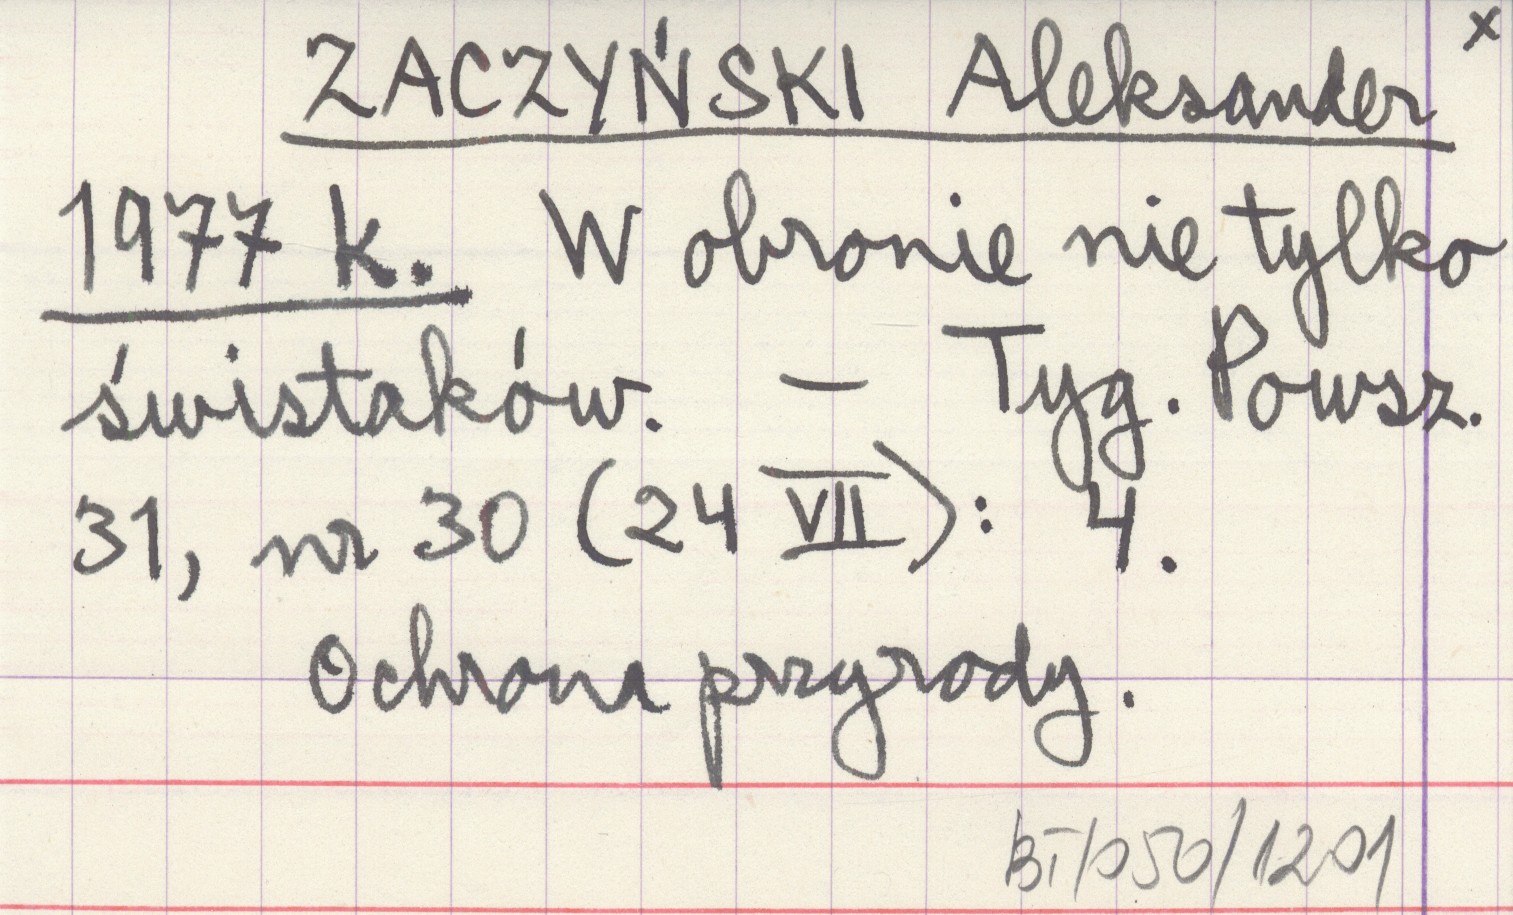 x
ZACZYŃSKI Aleksander
1977 k. W obronie nie tylko
świstaków. – Tyg. Powsz.
31, nr 30 (24 VII): 4.
Ochrona przyrody.
BT/050/1201